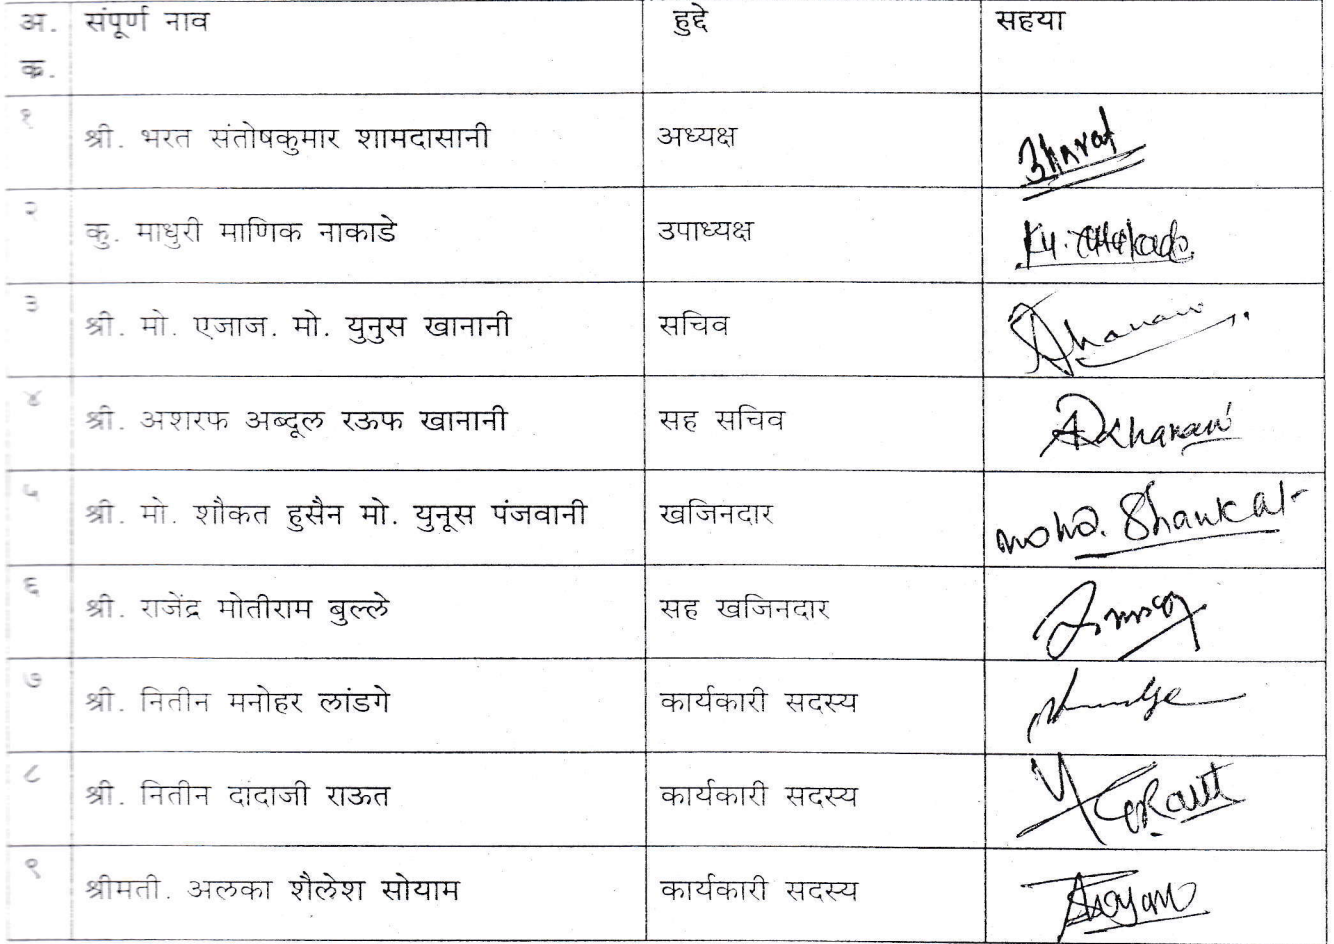 अ. संपूर्ण नाव हुद्दे सहया
क्र.
१ श्री. भरत संतोषकुमार शामदासानी अध्यक्ष Bharat
२ कु. माधुरी माणिक नाकाडे उपाध्यक्ष
३ श्री. मो. एजाज. मो. युनुस खानानी सचिव
४ श्री. अशरफ अब्दूल रऊफ खानानी सह सचिव
५ श्री. मो. शौकत हुसैन मो. युनूस पंजवानी खजिनदार Mohd. Shaukat
६ श्री. राजेंद्र मोतीराम बुल्ले सह खजिनदार
७ श्री. नितीन मनोहर लांडगे कार्यकारी सदस्य
८ श्री. नितीन दांदाजी राऊत कार्यकारी सदस्य
९ श्रीमती. अलका शैलेश सोयाम कार्यकारी सदस्य